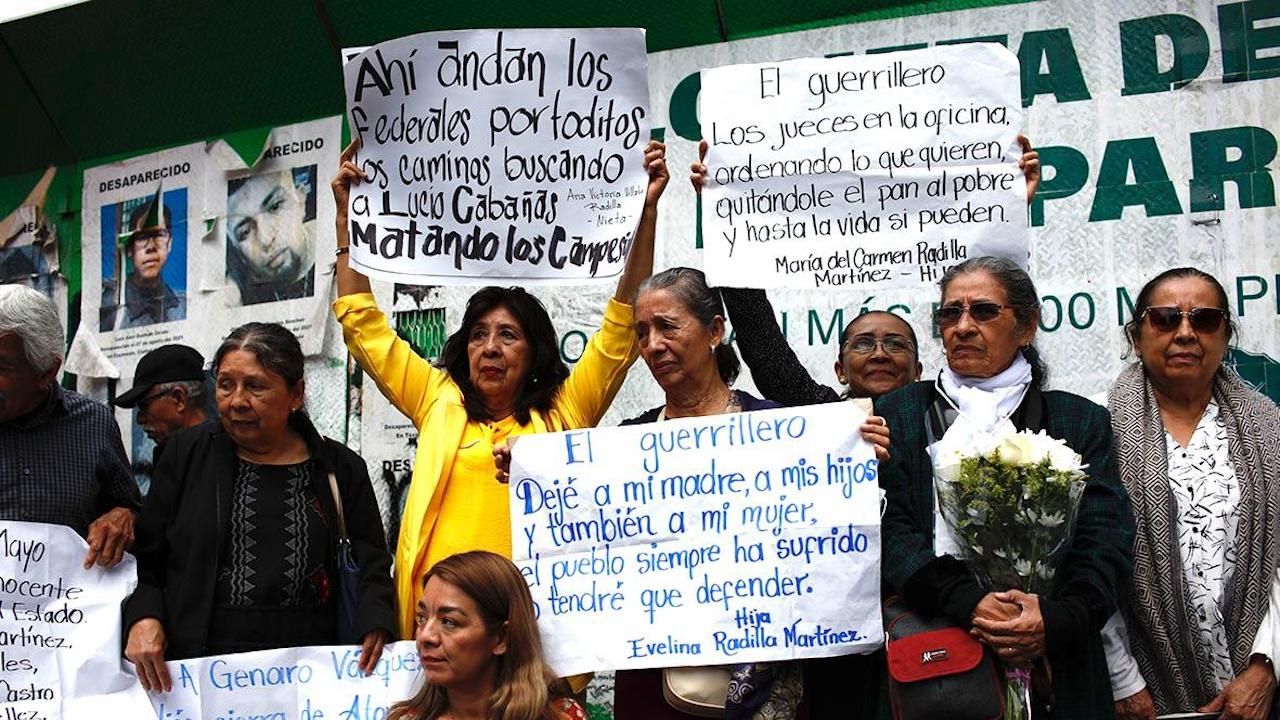 Ahí andan los
federales portoditos
los caminas buscando
a Lucio Cabañas
Matando los Campesi
Ana Victoria Villal
Radilla
Nieta
El guerrillero
Los jueces en la oficina,
ordenando lo que quieren,
quitándole el pan al pobre
y hasta la vida si pueden.
María del Carmen Radilla
Martínez - Hij
DESAPARECIDO
ARECIDO
TA DE
PAR
N MÁS DE
00
El guerrillero
Dejé a mi madre, a mis hijos
y también a mi mujer,
el pueblo siempre ha sufrido
tendré que defender.
Hija
Evelina Radilla Martínez.
Mayo
nocente
Estado.
artínez,
les,
Castro
lez
A Genaro Vázque
sierra de Atoya